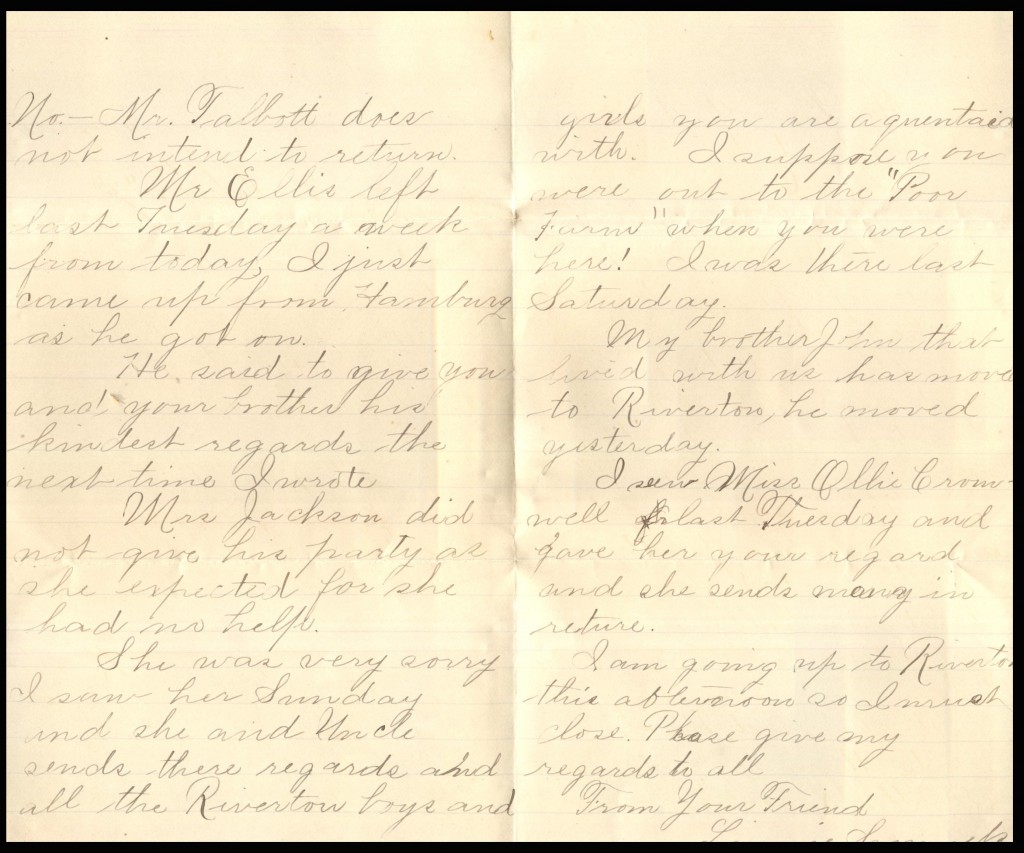 No.— Mr. Talbott does
not intend to return.
Mr Ellis left
last Tuesday a week
from today, I just
came up from Hamburg
as he got on.
He said to give you
and your brother his
kindest regards the
next time I wrote
Mrs Jackson did
not give his party as
she expected for she
had no help.
She was very sorry
I saw her Sunday
and she and Uncle
sends there regards and
all the Riverton boys and
girls you are aquentaid
with. I suppose you
were out to the "Poor
Farm" when you were
here! I was there last
Saturday.
My brother John that
lived with us has move
to Riverton, he moved
yesterday.
I saw Miss Ollie Crom-
well last Tuesday and
gave her your regard
and she sends many in
reture.
I am going up to Riverton
this afternoon so I must
close. Please give my
regards to all
From Your Friend